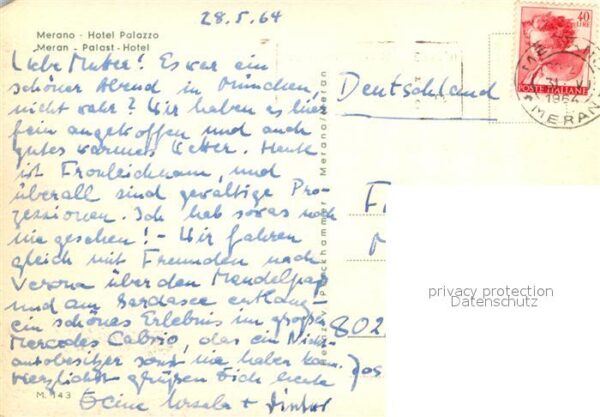 28.5.64
Merano - Hotel Palazzo
Meran - Palast-Hotel
Liebe Mutter! Es war ein
schöner Abend in München,
nicht wahr? Wir haben es hier
fein angetroffen und auch
gutes warmes Wetter. Heute
ist Fronleichnam, und
überall sind gewaltige Pro-
zessionen. Ich hab sowas noch
nie gesehen! - Wir fahren
gleich mit Freunden nach
Verona über den Mendelpaß
und am Gardasee entlang -
ein schönes Erlebnis im großen
Mercedes Cabrio, das ein Nicht-
autobesitzer sonst nie haben kann.
Herzlichst grüßen Dich heute
Deine Ursula +
M. 143
Meran
40
LIRE
POSTE ITALIANE
1964
MERAN
Deutschland
802
Jos
privacy protection
Datenschutz